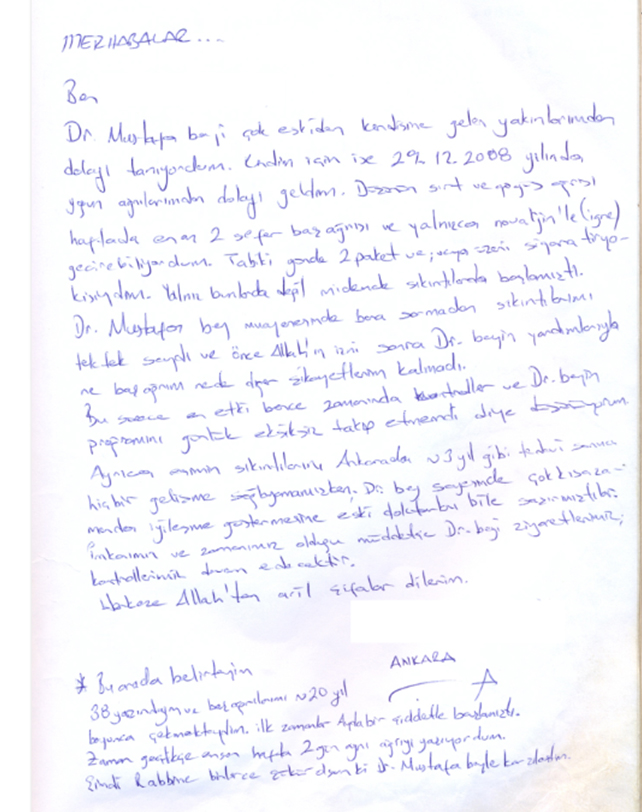 MERHABALAR...
Ben
Dr. Mustafa beyi çok eskiden kendisine gelen yakınlarımdan
dolayı tanıyordum. Kendim için ise 29.12.2008 yılında
ağrılarımdan dolayı geldim. sırt ve göğüs ağrısı
haftada en az 2 sefer baş ağrısı ve yalnızca novaljin'le (iğne)
geçirebiliyordum. Tabiki günde 2 paket ve üzeri sigara tiryo-
kisiydim. Yalnız bunlarda değil midemde sıkıntılarda başlamıştı.
Dr. Mustafa bey muayenesinde bana sormadan sıkıntılarımı
tek tek saydı ve önce Allah'ın izni sonra Dr. beyin yardımlarıyla
ne baş ağrım nede diğer şikayetlerim kalmadı.
Bu sürece en etki bence zamanında kontroller ve Dr. beyin
programını günlük eksiksiz takip etmemdi diye düşünüyorum
Ayrıca sıkıntılarını Ankarada ~3 yıl gibi tedavi sonucu
hiçbir gelişme sağlıyamamışken, Dr. bey sayesinde çok kısa za-
manda iyileşme göstermesine eski doktorları bile şaşırmıştılar.
imkanım ve zamanımız olduğu müddetçe Dr. beyi ziyaretlerimiz,
kontrollerimiz devam edecektir.
Herkeze Allah'tan acil şifalar dilerim.
ANKARA
* Bu arada belirteyim
38 yaşındayım ve baş ağrılarımı ~20 yıl
boyunca çekmekteydim. ilk zamanlar Ayda bir şiddetle başlamıştı.
Zaman geçtikçe haftada 2 gün aynı ağrıyı yaşıyordum.
Şimdi Rabbime binlerce şükür olsun ki Dr. Mustafa beyle karşılaştım.